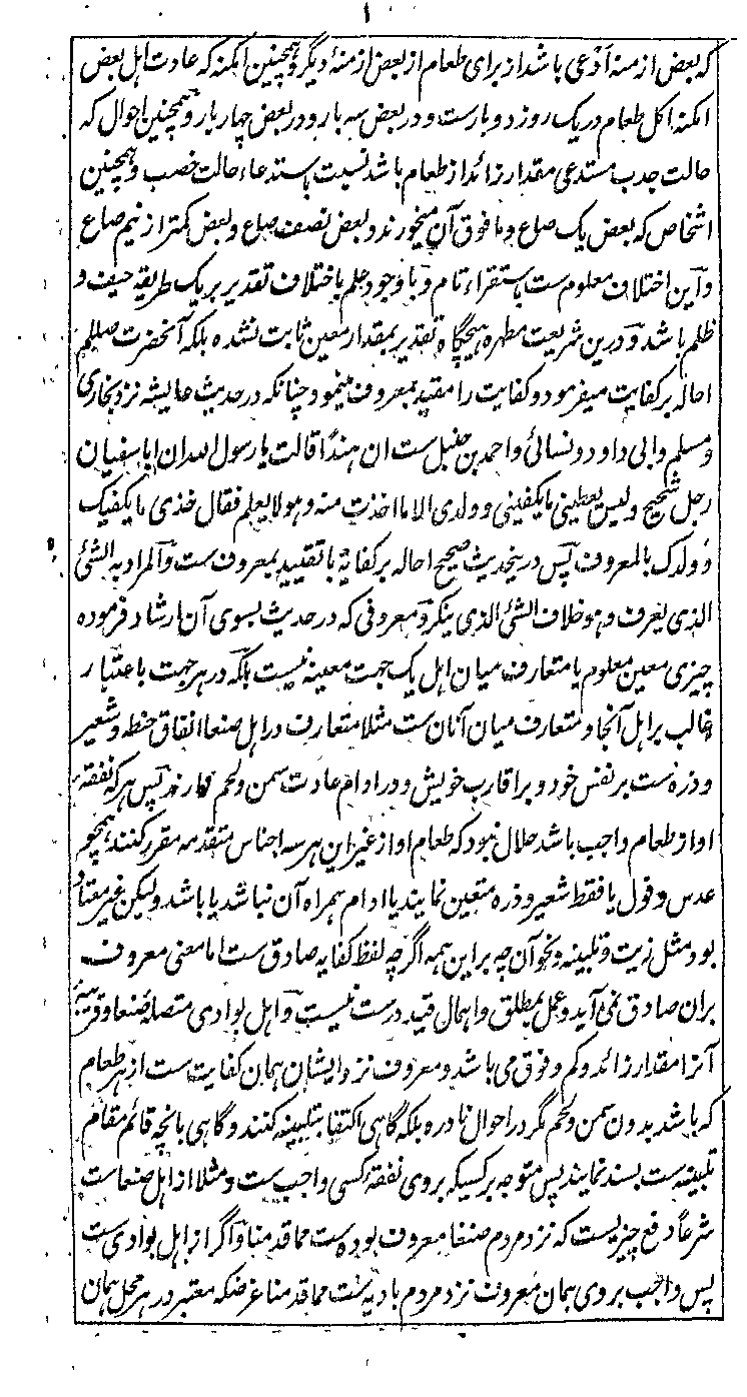 ۱
که بعض ازمنه ادعی باشد از برای طعام از بعض ازمنهٔ دیگر و همچنین امکنه که عادت اهل بعض
امکنه اکل طعام در یک روز دو بارست و در بعض سه بار و در بعض چهار بار و همچنین احوال که
حالت جدب مستدعی مقدار زائد از طعام باشد نسبت باستدعاء حالت خصب و همچنین
اشخاص که بعض یک صاع و مافوق آن میخورند و بعض نصف صاع و بعض کمتر از نیم صاع
و این اختلاف معلوم ست باستقراء تام و با وجود علم باختلاف تقدیر بر یک طریقه حیف و
ظلم باشد و درین شریعت مطهره هیچگاه تقدیر بمقدار معین ثابت نشده بلکه آنحضرت صللم
احاله بر کفایت میفرمود و کفایت را مقید بمعروف مینمود چنانکه در حدیث عایشه نزد بخاری
و مسلم و ابی داود و نسائی و احمد بن حنبل ست ان هندًا قالت یا رسول الله ان ابا سفیان
رجل شحیح و لیس یعطینی ما یکفینی و ولدی الا ما اخذت منه و هو لا یعلم فقال خذی ما یکفیک
و ولدک بالمعروف پس درینحدیث صحیح احاله بر کفایة با تقیید بمعروف ست و المراد به الشئ
الذی یعرف و هو خلاف الشئ الذی ینکر و معروفی که در حدیث بسوی آن ارشاد فرموده
چیزی معین معلوم یا متعارف میان اهل یک جهت معینه نیست بلکه در هر جهت باعتبار
غالب بر اهل آنجا و متعارف میان آنان ست مثلا متعارف در اهل صنعا انفاق حنطه و شعیر
و ذره ست بر نفس خود و بر اقارب خویش و در ادام عادت سمن و لحم دارند پس هر که نفقه
او از طعام واجب باشد حلال نبود که طعام او از غیر این هر سه اجناس متقدمه مقرر کنند همچو
عدس و فول یا فقط شعیر و ذره متعین نمایند یا ادام همراه آن نباشد یا باشد ولیکن غیر معتاد
بود مثل زیت و تلبینه و نحو آن چه بر این همه اگرچه لفظ کفایه صادق ست اما معنی معروف
بران صادق نمی آید و عمل بمطلق و اهمال قید درست نیست و اهل بوادی متصلهٔ صنعا و قریبهٔ
آنرا مقدار زائد و کم و فوق می باشد و معروف نزد ایشان همان کفایت ست از هر طعام
که باشد بدون سمن و لحم مگر در احوال نادره بلکه گاهی اکتفا بتلبینه کنند و گاهی بانچه قائم مقام
تلبینه ست بسند نمایند پس متوجه بر کسیکه بروی نفقه کسی واجب ست و مثلا از اهل صنعاست
شرعًا دفع چیزیست که نزد مردم صنعا معروف بوده ست مما قدمنا و اگر از اهل بوادی ست
پس واجب بروی همان معروف نزد مردم بادیه ست مما قدمنا غرضکه معتبر در هر محل همان